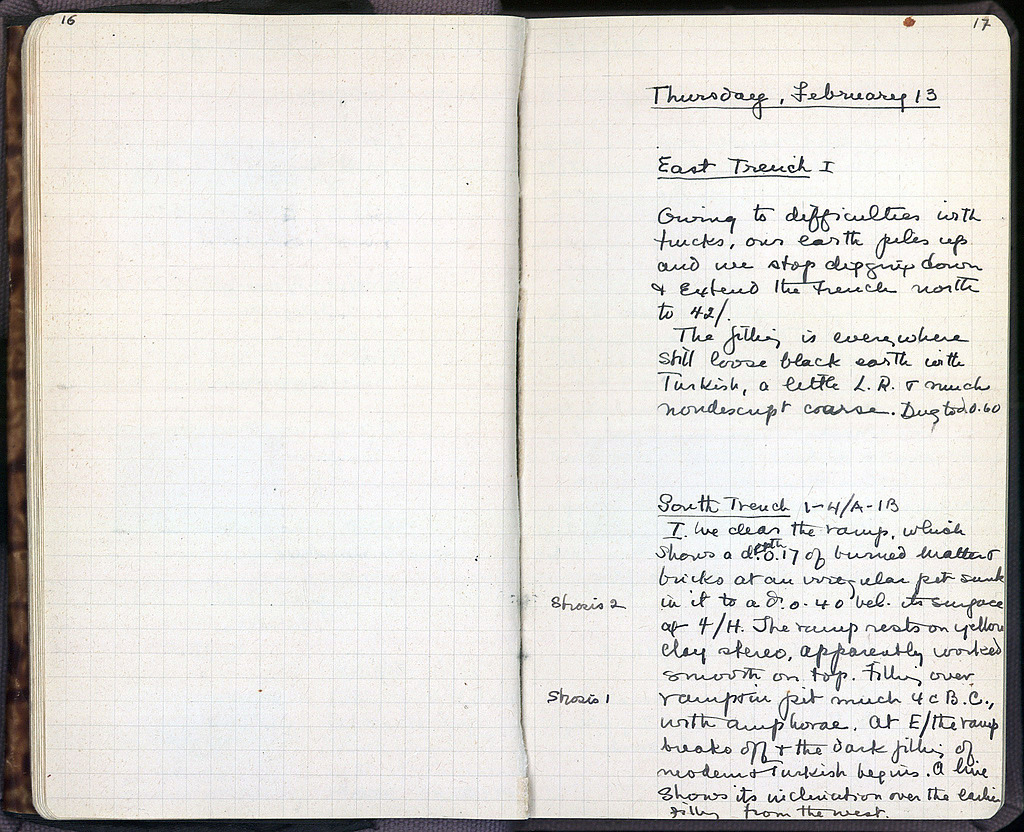 16
17
Thursday, February 13
East Trench I
Owing to difficulties with
trucks, our earth piles up
and we stop digging down
& Extend the trench north
to 42/.
The filling is everywhere
still loose black earth with
Turkish, a little L.R. & much
nondescript coarse. Dug to d. 0.60
South Trench 1-4/A-1B
I. We clear the ramp, which
shows a depth 0.17 of burned matter &
bricks at an irregular pit sunk
Strosis 2
in it to a d. 0.40 bel. its surface
at 4/H. The ramp rests on yellow
clay stereo, apparently worked
smooth on top. Filling over
Strosis 1
ramp & in pit much 4 c B.C.,
with amphorae. At E/ the ramp
breaks off & the dark filling of
modern & Turkish begins. A line
shows its inclination over the earlier
filling from the west.